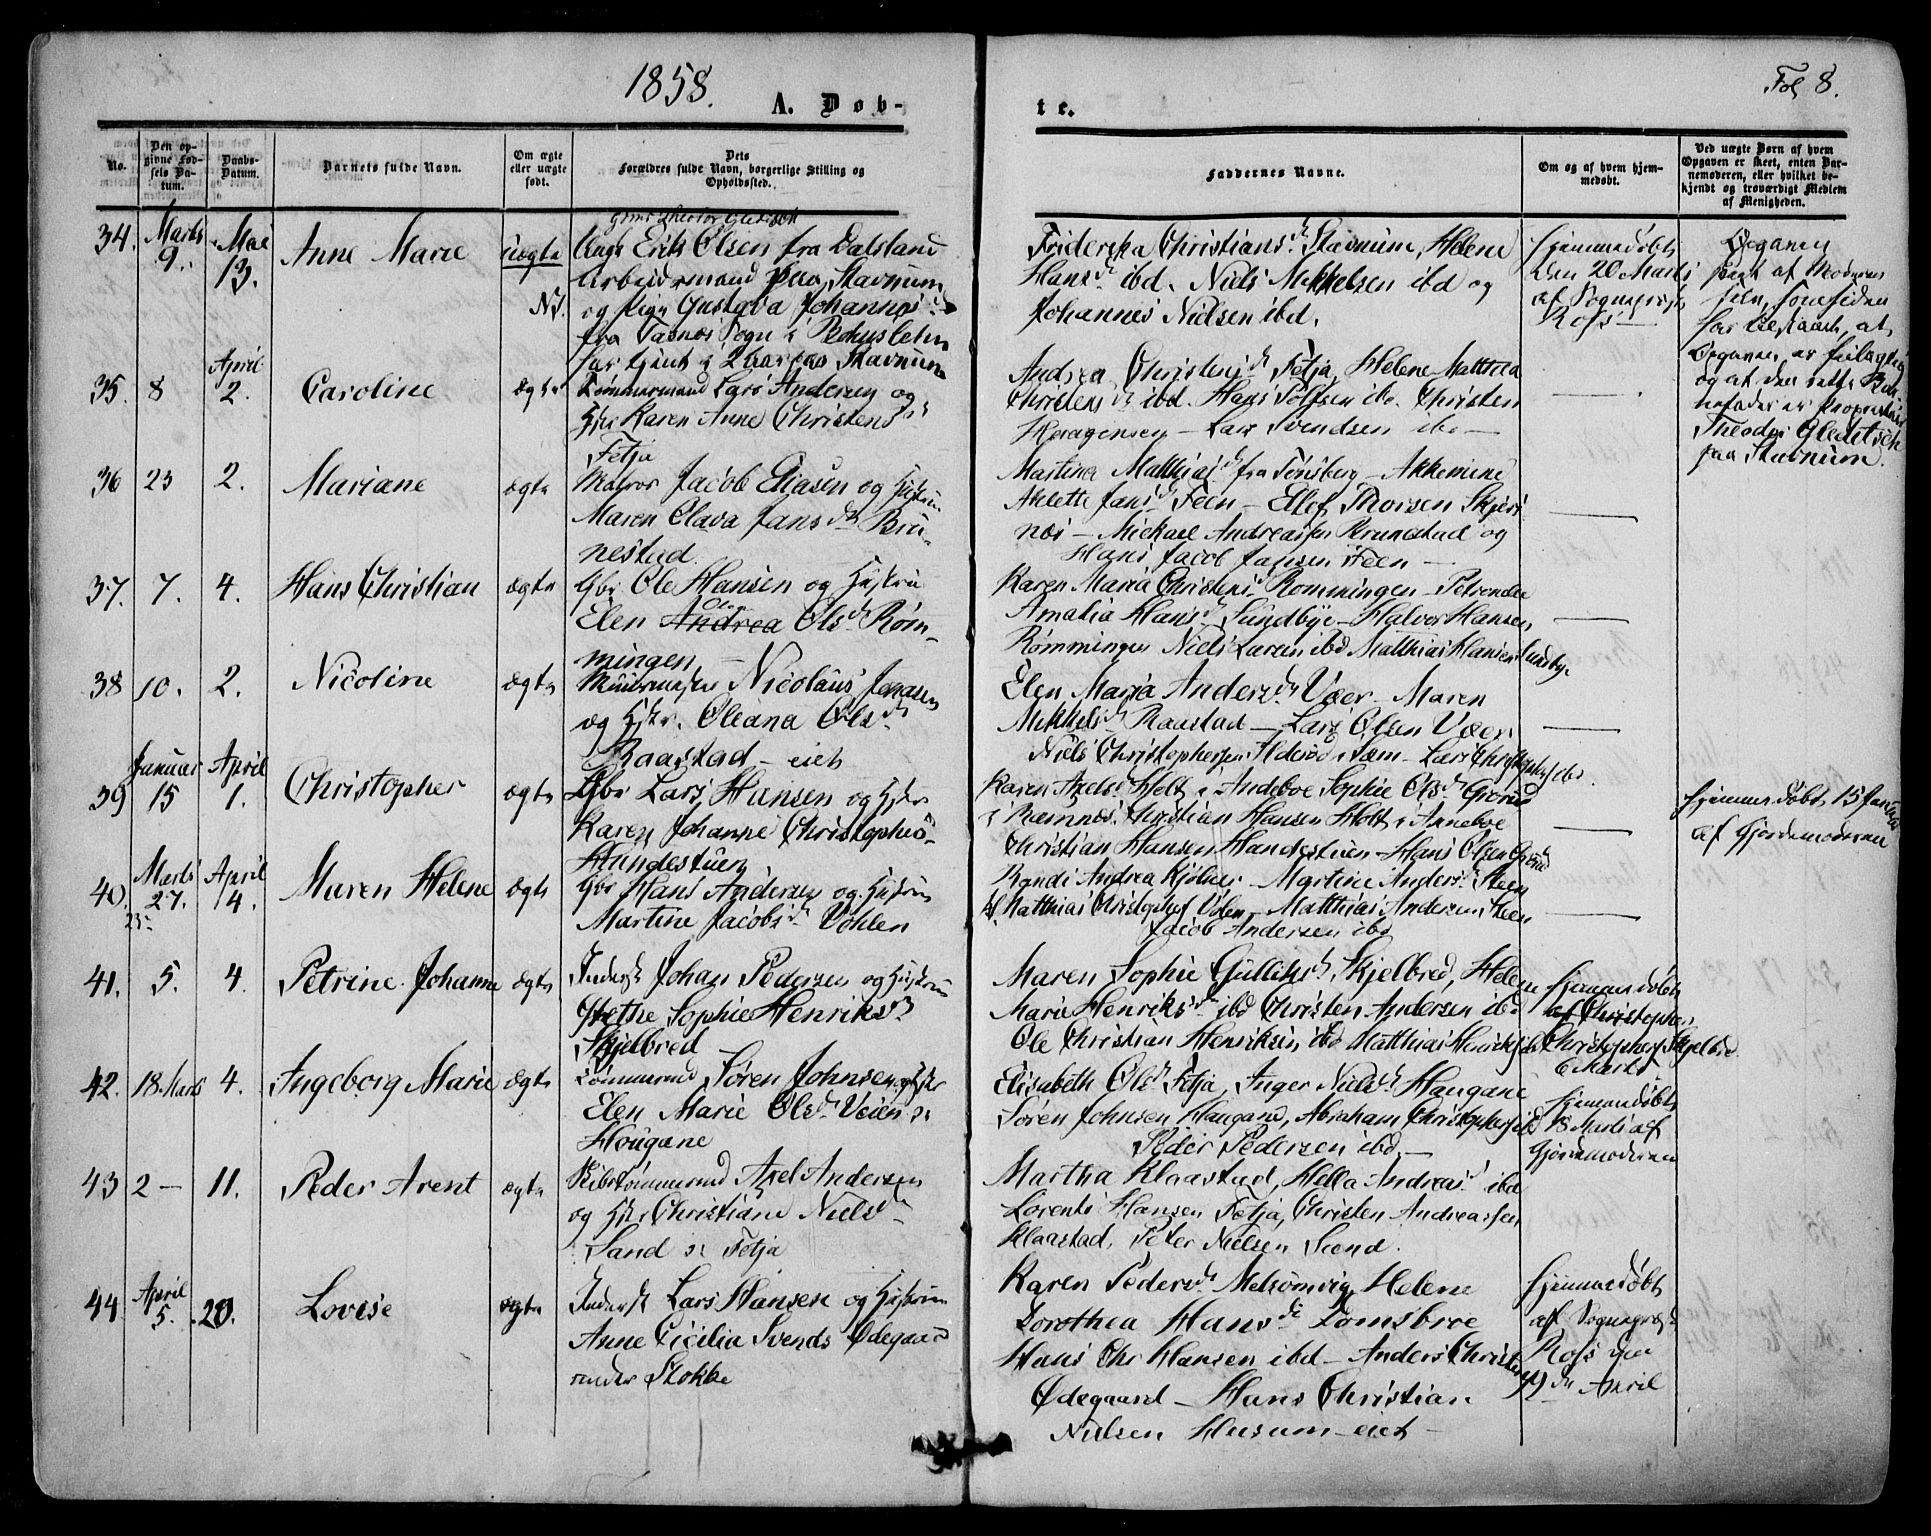 1858.
Fol 8.
A. Døb-
te.
No.
Den op-
givne Fød-
sels Da-
tum.
Daabs-
Datum.
Barnets fulde Navn.
Om ægte
eller uægte
født.
Dets
Forældres fulde Navn, borgerlige Stilling og
Opholdssted.
Faddernes Navne.
Om og af hvem hjem-
medøbt.
Ved uægte Børn af hvem
Opgaven er skeet, enten Bar-
nemoderen, eller hvilket be-
kjendt og troværdigt Medlem
af Menigheden.
34. Marts 9. Mai 13. Anne Marie uægte
Ungk Erik Olsen fra Dalsland
Arbeidsmand paa Stavnum
og Pige Gustava Johannes
fra Tasnøs Sogn i Bohuslehn
har tjent i 2 Aar paa Stavnum
Friderika Christians d. Stavnum, Helene
Hans d. ibd. Niels Mikkelsen ibd og
Johannes Nielsen ibd.
Hjemmedøbt
den 20 Marts
af Sognepræst
Opgaven
skeet af Moderen
selv, senere siden
har tilstaaet, at
Opgaven er feilagtig
og at den rette Bar-
nefader er Proprietair
Theodor Gleditsch
paa Stavnum.
35. 8 April 2. Caroline ægte
Tømmermand Lars Andersen og
Hstr Karen Anne Christens d.
Fetja
Andrea Christens d. Fetja, Helene Mathea
Christens d. ibd. Hans Tolfsen ibd. Christen
Haagensen - Lars Svendsen ibd -
36 23 2. Mariane ægte
Matros Jacob Eliasen og Hustru
Maren Olava Jans d. Bru-
nestad.
Martina Matthias d. fra Tønsberg - Akkemine
Aslette Jans d. Feen - Ellef Thorsen Skjers
næs - Mickael Andreassen Brunestad og
Hans Jacob Jansen Feen -
37. 7. 4. Hans Christian ægte
Gbr Ole Hansen og Hustru
Elen Andrea Ols d. Røm-
mingen -
Karen Maria Christens d. Rømmingen - Petronelle
Amalia Hans d. Sundbye - Halvor Hansen
Rømmingen Niels Larsen ibd Matthias Hansen Sundbye
38 10. 2. Nicoline ægte
Nicolaus Jonasen
og Hstr. Oleana Ols d.
Raastad - eiet
Elen Maria Anders d. Væer - Maren
Mikkels d. Raastad - Lars Olsen Væer
Niels Christophersen i Sem - Lars Christophersen ibd
39 Januar 15 April 1. Christopher ægte
Gbr Lars Hansen og Hstr
Karen Johanne Christophs
Handestuen
Karen Axels d. Holt i Andeboe Sophie Ols d. Grorud
i Ramnes Christian Hansen Holt i Anneboe
Christian Hansen Handestuen - Hans Olsen Grorud
Hjemmedøbt 15 Januar
af Gjordemoderen
40. Marts 27. April 4. Maren Helene ægte
25.
Gbr Hans Andersen og Hustru
Martine Jacobs d. Vøhlen
Randi Andrea Kjølner - Martine Anders d. Steen
Matthias Christophers Vølen - Matthias Andersen Steen
Jacob Andersen ibd
41. 5. 4. Petrine Johanne ægte
Inderst Johan Pedersen og Hustru
Grethe Sophie Henriks d.
Skjelbred
Maren Sophie Gulliks d. Skjelbred, Helene
Marie Henriks d. ibd Christen Andersen ibd
Ole Christian Henriksen ibd Matthias Henriksen ibd
Hjemmedøbt
af Christopher
Christophers Skjelbred
6 Marts
42. 18 Marts 4. Ingeborg Marie ægte
Tømmermd Søren Johnsen og Hstr
Elen Marie Ols d. Veien s:
Hougane
Elisabeth Ols d. Fetja, Inger Niels d. Haugane
Søren Johnsen Haugane, Abraham Christophersen ibd
Peder Pedersen ibd. -
Hjemmedøbt
18 Marts af
Gjordemoderen
43 2 - 11. Peder Arent ægte
Skibstømmermd Axel Andersen
og Hstr Christiane Niels d.
Sand s: Fetja
Martha Klaastad, Hella Andreas d. ibd
Lorents Hansen Fetja, Christen Andreassen
Klaastad, Peter Nielsen Sand.
44 April 5. 20. Lovise ægte
Inderst Lars Hansen og Hustru
Anne Cicilia Svends Ødegaard
under Stokke
Karen Peders d. Melsomvig, Helene
Dorothea Hans d. Lomsbroe
Hans Chr Hansen ibd - Anders Christ
Ødegaard - Hans Christian
Nielsen Husum - eiet -
Hjemmedøbt
af Sognepræst
den
19 de April